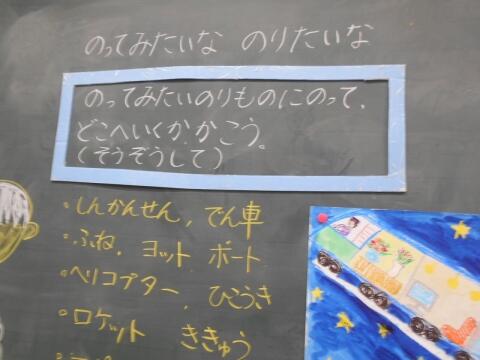 のってみたいな のりたいな
のってみたいのりものにのって、
どこへいくかかこう。
(そうぞうして)
・しんかんせん, でん車
・ふね, ヨット ボート
・ヘリコプター, ひこうき
・ロケット ききゅう